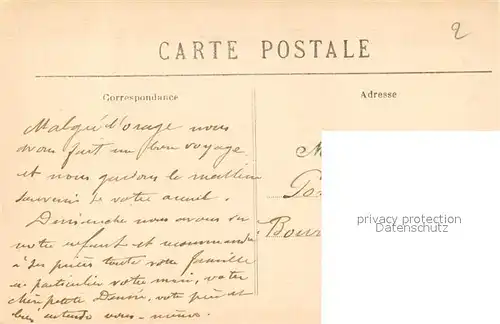 2
CARTE POSTALE
Correspondance
Adresse
Malgré l'orage nous
avons fait un bon voyage
et nous gardons le meilleur
souvenir de votre accueil.
Dimanche nous avons vu
votre enfant et recommandé
à ses prières toute votre famille
en particulier votre mari, votre
chère petite Denise, votre père et
bien entendu vous-même.
M
Po
Bour
privacy protection
Datenschutz